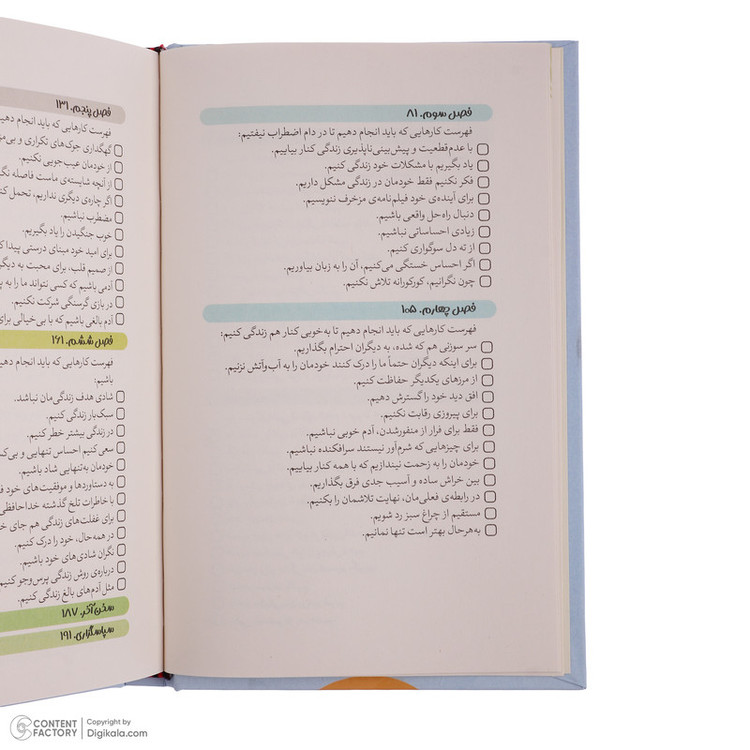 فصل سوم. ۸۱
فهرست کارهایی که باید انجام دهیم تا در دام اضطراب نیفتیم:
با عدم‌قطعیت و پیش‌بینی‌ناپذیری زندگی کنار بیاییم.
یاد بگیریم با مشکلات خود زندگی کنیم.
فکر نکنیم فقط خودمان در زندگی مشکل داریم.
برای آینده‌ی خود فیلم‌نامه‌ی مزخرف ننویسیم.
دنبال راه‌حل واقعی باشیم.
زیادی احساساتی نباشیم.
از ته دل سوگواری کنیم.
اگر احساس خستگی می‌کنیم، آن را به زبان بیاوریم.
چون نگرانیم، کورکورانه تلاش نکنیم.
فصل چهارم. ۱۰۵
فهرست کارهایی که باید انجام دهیم تا به‌خوبی کنار هم زندگی کنیم:
سر سوزنی هم که شده، به دیگران احترام بگذاریم.
برای اینکه دیگران حتماً ما را درک کنند خودمان را به آب‌وآتش نزنیم.
از مرزهای یکدیگر حفاظت کنیم.
افق دید خود را گسترش دهیم.
برای پیروزی رقابت نکنیم.
فقط برای فرار از منفورشدن، آدم خوبی نباشیم.
برای چیزهایی که شرم‌آور نیستند سرافکنده نباشیم.
خودمان را به زحمت نیندازیم که با همه کنار بیاییم.
بین خراش ساده و آسیب جدی فرق بگذاریم.
در رابطه‌ی فعلی‌مان، نهایت تلاشمان را بکنیم.
مستقیم از چراغ سبز رد شویم.
به‌هرحال بهتر است تنها نمانیم.
فصل پنجم. ۱۳۱
فهرست کارهایی که باید انجام دهیم
نگهداری جوک‌های تکراری و بی‌مز
از خودمان عیب‌جویی نکنیم.
از آنچه شایسته‌ی ماست فاصله نگ
اگر چاره‌ی دیگری نداریم، تحمل کن
مضطرب نباشیم.
خوب جنگیدن را یاد بگیریم.
برای امید خود مبنای درستی پیدا ک
از صمیم قلب، برای محبت به دیگر
آدمی باشیم که کسی نتواند ما را به
در بازی گرسنگی شرکت نکنیم.
آدم بالغی باشیم که با بی‌خیالی برای
فصل ششم. ۱۶۱
فهرست کارهایی که باید انجام دهیم
باشیم:
شادی هدف زندگی‌مان نباشد.
سبک‌بار زندگی کنیم.
در زندگی بیشتر خطر کنیم.
سعی کنیم احساس تنهایی و بی‌ک
خودمان به‌تنهایی شاد باشیم.
به دستاوردها و موفقیت‌های خود
با خاطرات تلخ گذشته خداحافظی
برای غفلت‌های زندگی هم جای
در همه‌حال، خود را درک کنیم.
نگران شادی‌های خود باشیم.
درباره‌ی روش زندگی پرس‌وجو کنیم
مثل آدم‌های بالغ زندگی کنیم.
سخن آخر. ۱۸۷
سپاسگزاری. ۱۹۱
CONTENT FACTORY
Copyright by
Digikala.com